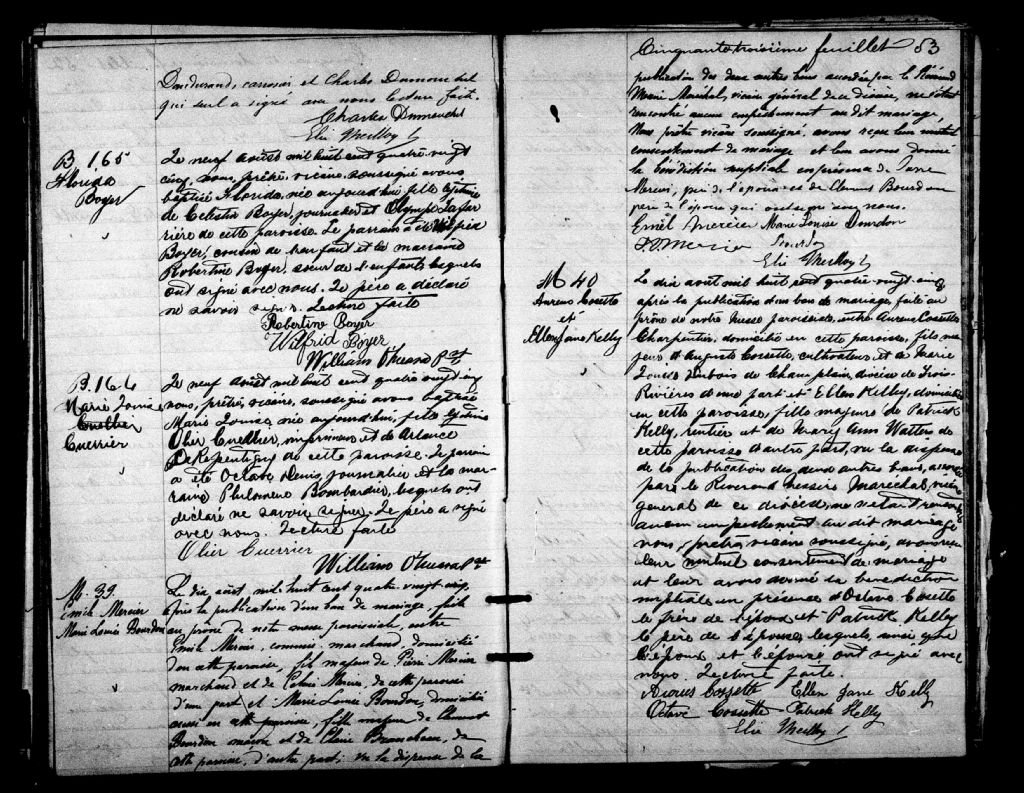 Dandurand, cousin et Charles Dumouchel
qui seul a signé avec nous lecture faite.
Charles Dumouchel
Elie Meilloy
B 165
Florida
Boyer
Le neuf août mil huit cent quatre vingt
cinq, nous, prêtre, vicaire, soussigné avons
baptisé Florida, née aujourd'hui, fille légitime
de Célestin Boyer, journalier et Olympe Laferrière
de cette paroisse. Le parrain a été Wilfrid
Boyer, cousin de l'enfant et la marraine
Robertine Boyer, soeur de l'enfant lesquels
ont signé avec nous. Le père a déclaré
ne savoir signer. Lecture faite
Robertine Boyer
Wilfrid Boyer
William O'Meara Pst
B. 166
Marie Louise
Cuellier
Cuerrier
Le neuf août mil huit cent quatre vingt cinq
nous, prêtre, vicaire, soussigné avons baptisé
Marie Louise, née aujourd'hui, fille légitime
Olier Cuellier, imprimeur et de
De Repentigny de cette paroisse. Le parrain
a été Octave Denis, journalier et la mar-
raine Philomene Bombardier, lesquels ont
déclaré ne savoir signer. Le père a signé
avec nous. Lecture faite
Olier Cuerrier
William O'Meara Pst
M. 39.
Emile Mercier
Marie Louise Bourdon
Le dix août, mil huit cent quatre vingt cinq,
après la publication d'un ban de mariage, faite
au prône de notre messe paroissiale, entre
Emile Mercier, commis, marchand, domicilié
d'en cette paroisse, fils majeur de Pierre Mercier
marchand et de Mercier, de cette paroisse
d'une part et Marie Louise Bourdon, domiciliée
aussi en cette paroisse, fille majeure de Clement
Bourdon maçon et de Claire de
cette paroisse, d'autre part; vu la dispense de la
Cinquante troisième feuillet 53
publication des deux autres bans accordée par le Révérend
Messire Maréchal, vicaire général de ce diocèse, ne s'étant
rencontré aucun empêchement au dit mariage,
Nous prêtre vicaire soussigné, avons reçu leur mutuel
consentement de mariage et leur avons donné
la bénédiction nuptiale en présence de
Mercier, père de l'époux et de Clement Bourdon
père de l'épouse qui ont signé avec nous.
Emile Mercier Marie Louise Bourdon
Mercier Bourdon
Elie Meilloy
M 40
Aureus Cossette
et
Ellen Jane Kelly
Le dix août mil huit cent quatre vingt cinq
après la publication d'un ban de mariage, faite au
prône de notre messe paroissiale, entre Aureus Cossette
Charpentier, domicilié en cette paroisse, fils ma-
jeur d'Auguste Cossette, cultivateur, et de Marie
Louise Dubois de Champlain, diocèse de Trois-
Rivières d'une part et Ellen Kelly, domiciliée
en cette paroisse, fille majeure de Patrick
Kelly, rentier et de Mary Ann Watters de
cette paroisse d'autre part, vu la dispense
de la publication des deux autres bans, accordée
par le Révérend Messire Maréchal, vicaire
général de ce diocèse, ne s'étant rencontré
aucun empêchement au dit mariage
nous, prêtre, vicaire soussigné, avons reçu
leur mutuel consentement de mariage
et leur avons donné la bénédiction
nuptiale en présence d'Octave Cossette
le frère de l'époux et Patrick Kelly
le père de l'épouse, lesquels, ainsi que
l'époux et l'épouse ont signé avec
nous. Lecture faite.
Aureus Cossette Ellen Jane Kelly
Octave Cossette Patrick Kelly
Elie Meilloy